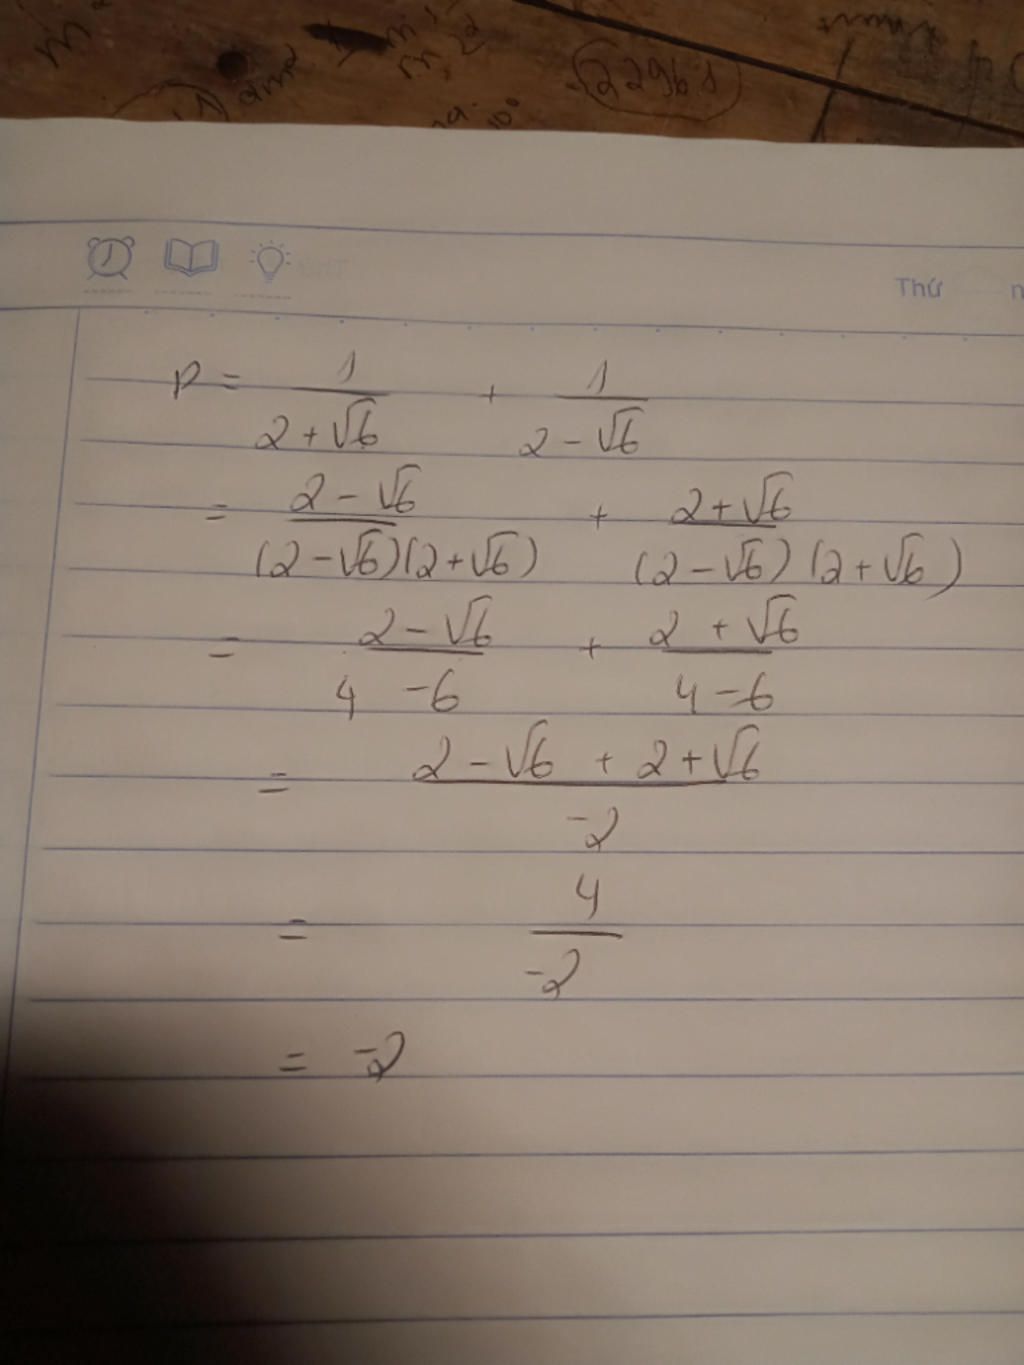 22961
Thứ
P = 1/(2 + √6) + 1/(2 - √6)
= (2 - √6)/((2 - √6)(2 + √6)) + (2 + √6)/((2 - √6)(2 + √6))
= (2 - √6)/(4 - 6) + (2 + √6)/(4 - 6)
= (2 - √6 + 2 + √6)/(-2)
= 4/(-2)
= -2